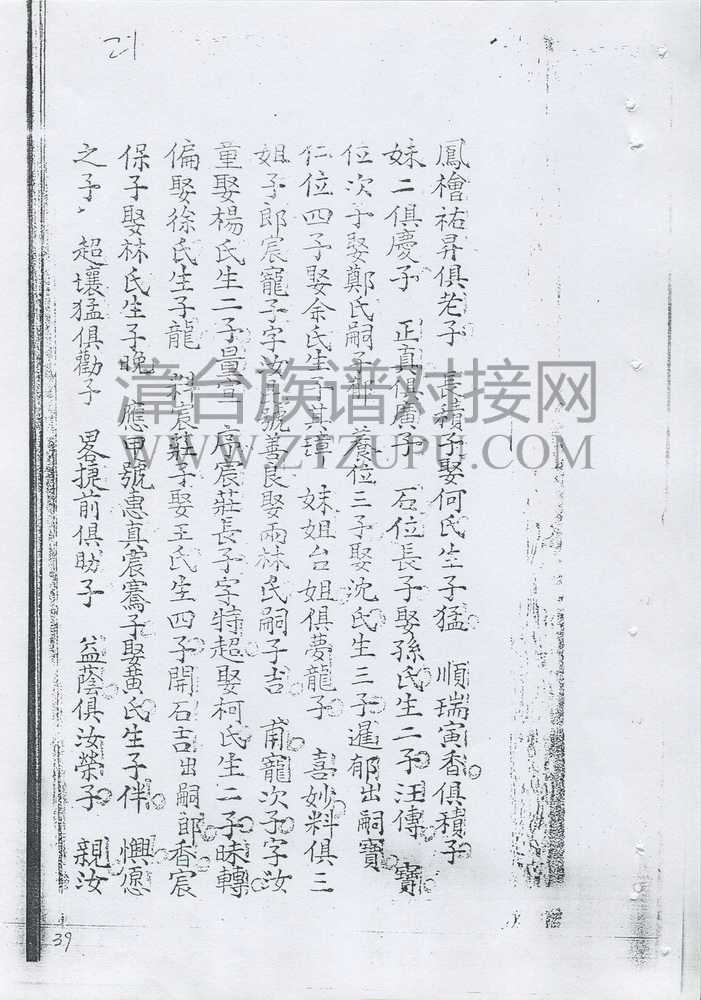 21
鳳檜祐昇俱老子 長積子娶何氏生子猛 順瑞寅香俱積子
妹二俱慶子 正真俱廣子 石位長子娶孫氏生二子汪傳 寶
位次子娶鄭氏嗣子 養位三子娶沈氏生三子暹郁出嗣寶
仁位四子娶余氏生子其璋 妹姐台姐俱夢龍子 喜妙料俱三
姐子郎宸寵子字汝 號善良娶兩林氏嗣子吉 甫寵次子字汝
童娶楊氏生二子量宣 序宸莊長子字特超娶柯氏生二子昧轉
偏娶徐氏生子龍 料宸莊子娶王氏生四子開石吉出嗣郎香宸
保子娶林氏生子晚 應甲號惠真震騫子娶黃氏生子伴 懊愿
之子 超壤猛俱勸子 畧捷前俱助子 益蔭俱汝榮子 親汝
39
漳台族谱对接网
WWW.ZTZUPU.COM